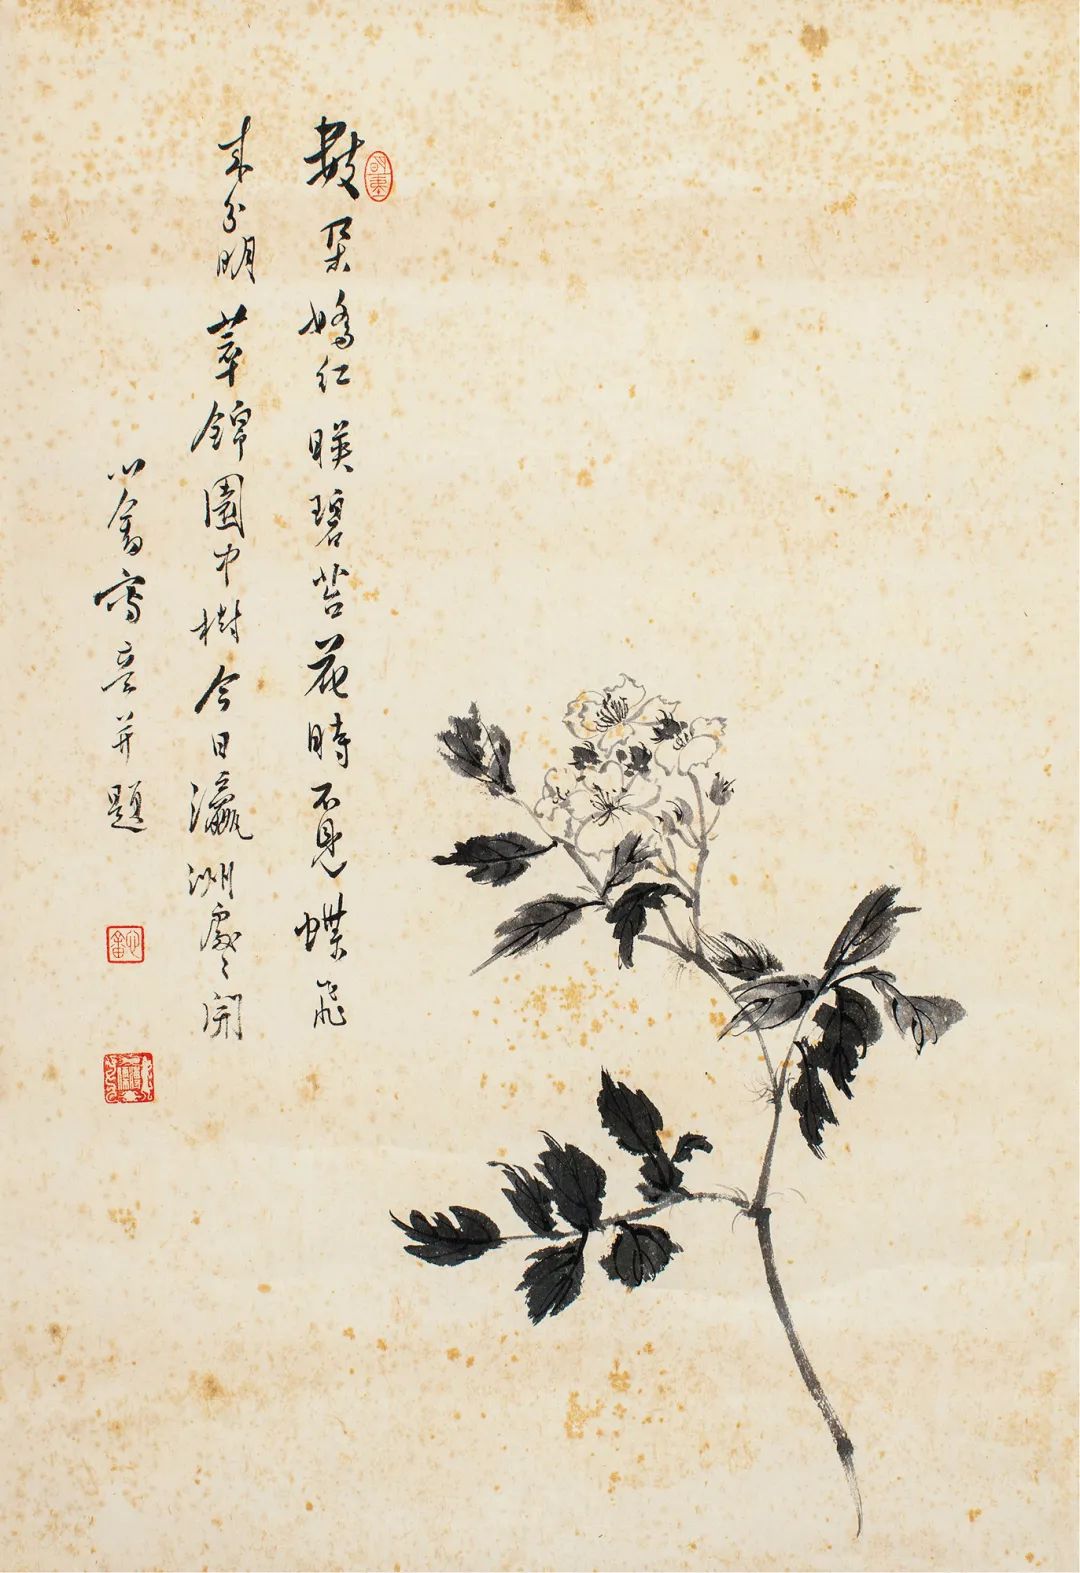 數朵嬌紅暎碧苔花時不見蝶飛
來分明萃錦園中樹今日瀛洲處〻開
心畬寫意并題